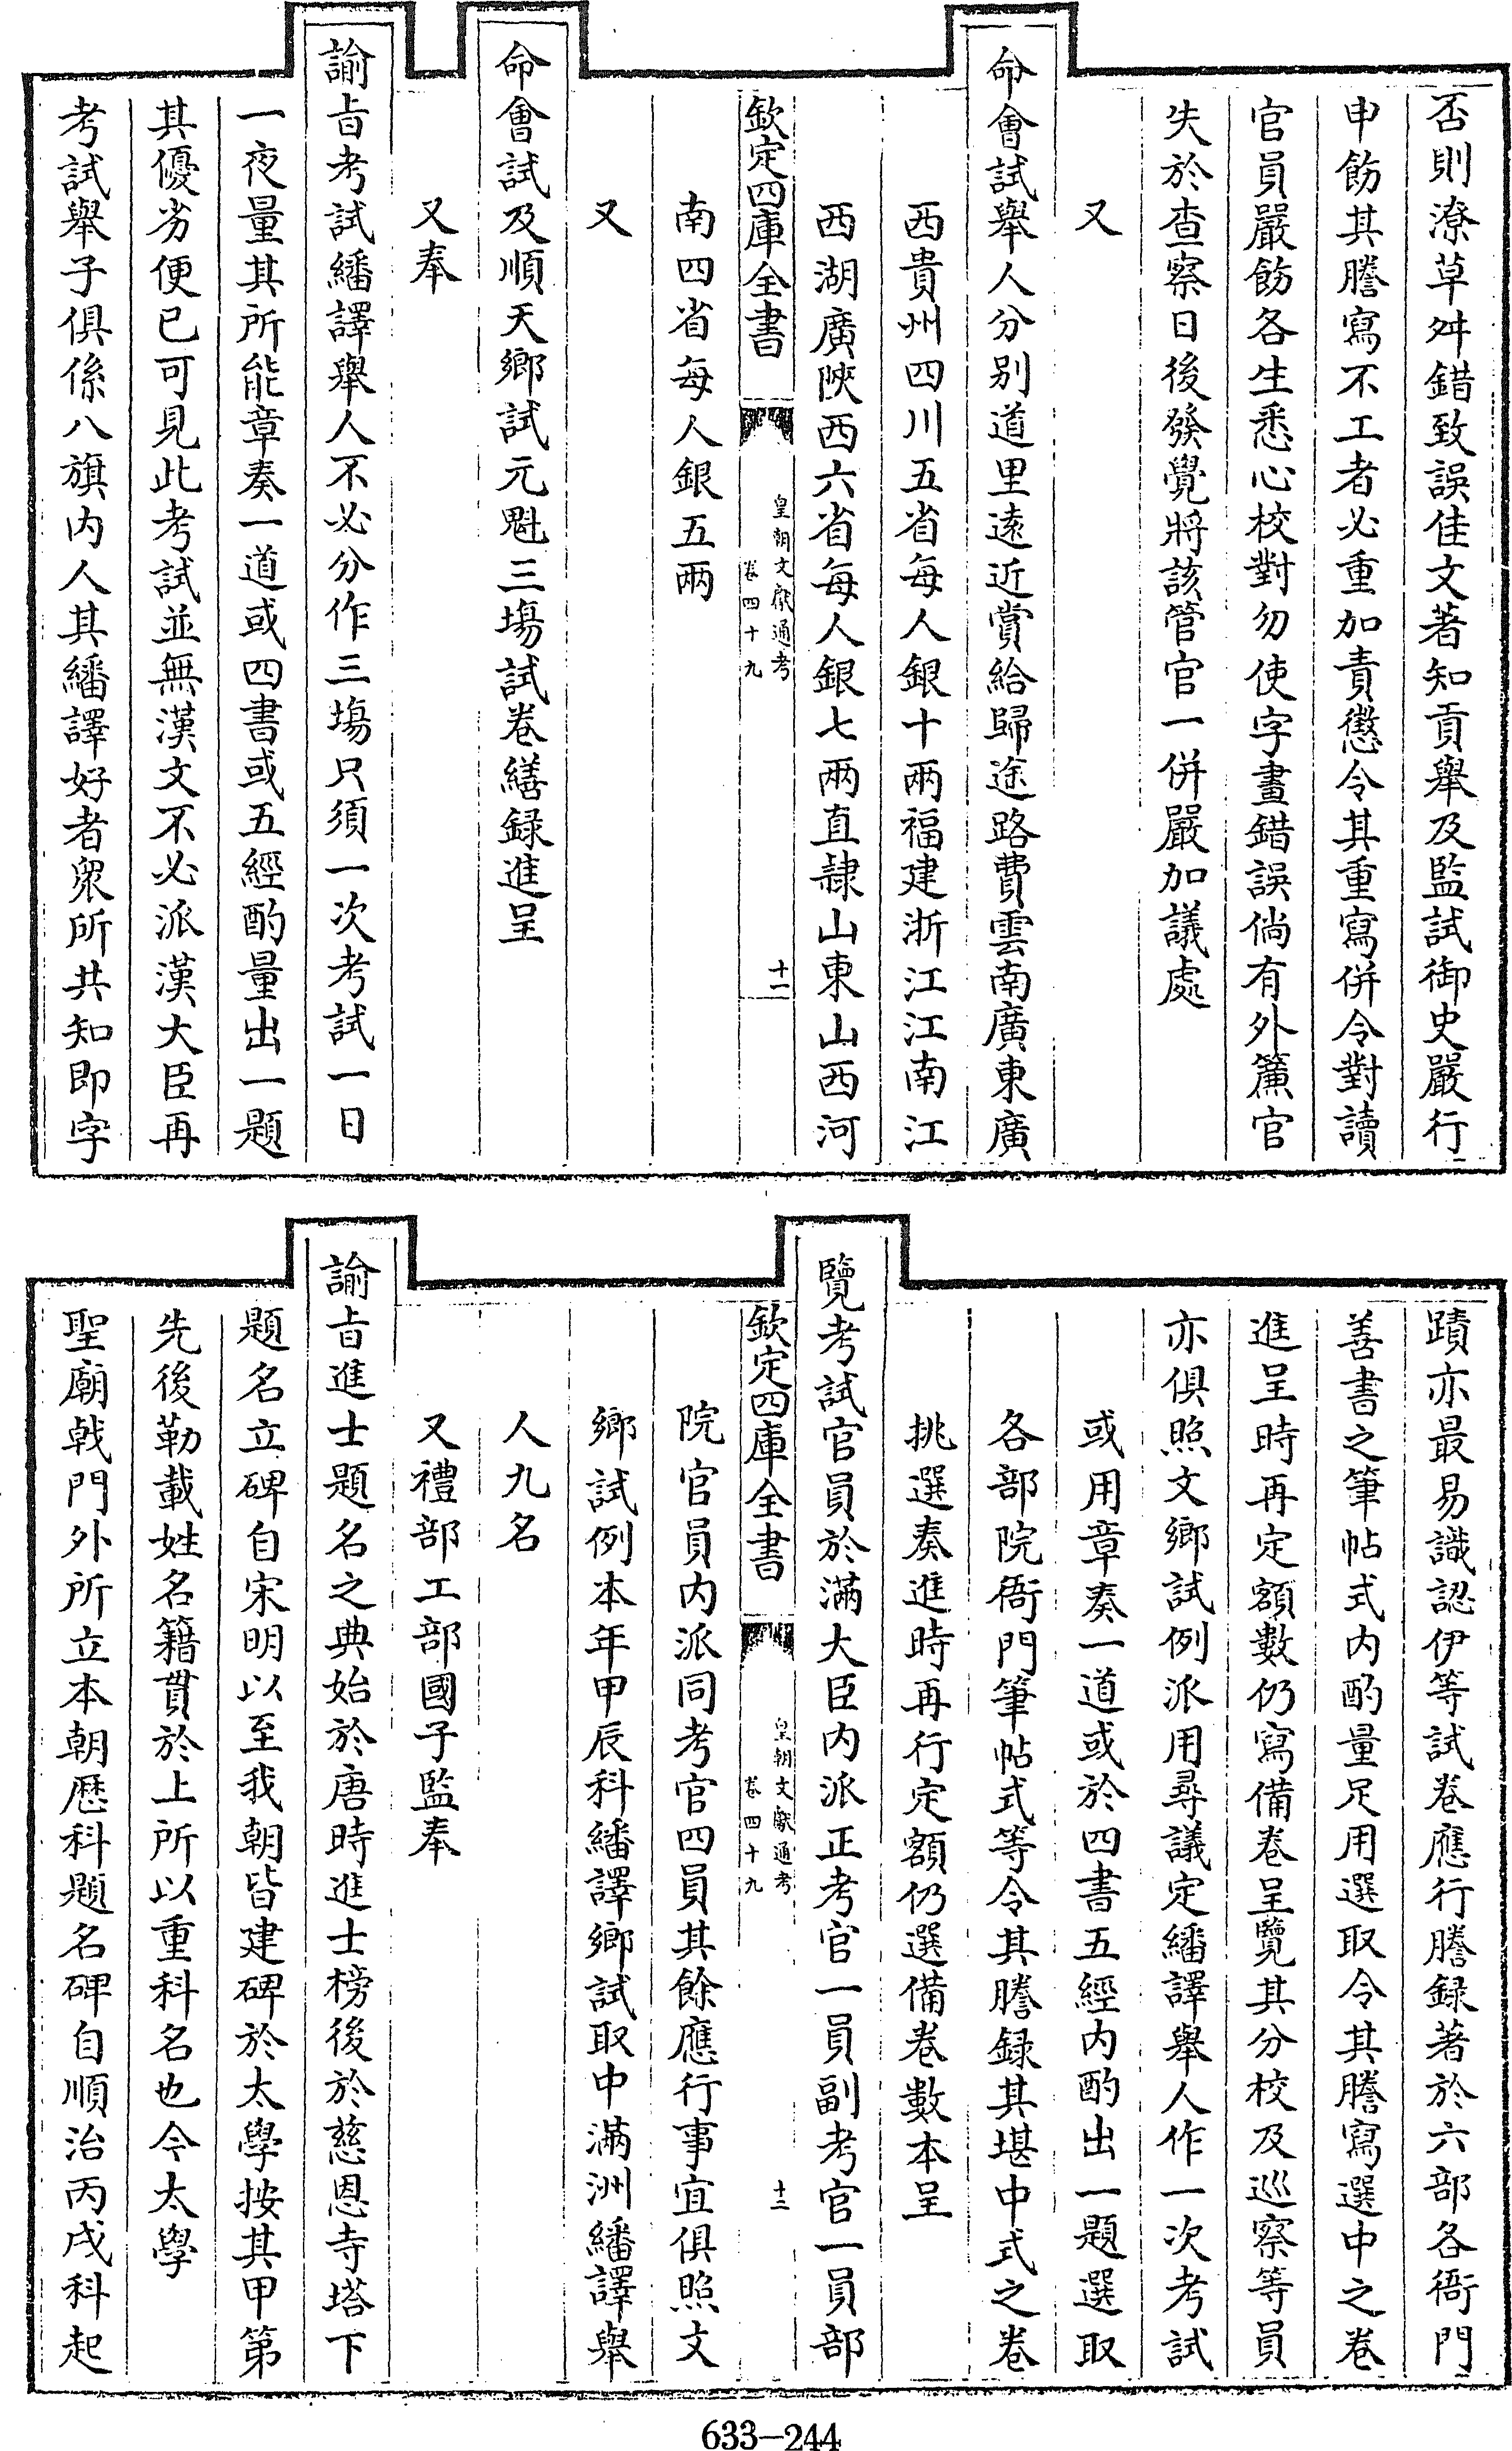 否則潦草舛錯致誤佳文著知貢舉及監試御史嚴行
申飭其謄寫不工者必重加責懲令其重寫併令對讀
官員嚴飭各生悉心校對勿使字畫錯誤倘有外簾官
失於查察日後發覺將該管官一併嚴加議處
又
命會試舉人分别道里遠近賞給歸途路費雲南廣東廣
西貴州四川五省每人銀十兩福建浙江江南江
西湖廣陜西六省每人銀七兩直隷山東山西河
欽定四庫全書
皇朝文獻通考
卷四十九
十一
南四省每人銀五兩
又
命會試及順天鄉試元魁三塲試卷繕録進呈
又奉
諭㫖考試繙譯舉人不必分作三塲只須一次考試一日
一夜量其所能章奏一道或四書或五經酌量出一題
其優劣便已可見此考試並無漢文不必派漢大臣再
考試舉子俱係八旗内人其繙譯好者衆所共知即字
蹟亦最易識認伊等試卷應行謄録著於六部各衙門
善書之筆帖式内酌量足用選取令其謄寫選中之卷
進呈時再定額數仍寫備卷呈覽其分校及巡察等員
亦俱照文鄉試例派用尋議定繙譯舉人作一次考試
或用章奏一道或於四書五經内酌出一題選取
各部院衙門筆帖式等令其謄録其堪中式之卷
挑選奏進時再行定額仍選備卷數本呈
覽考試官員於滿大臣内派正考官一員副考官一員部
欽定四庫全書
皇朝文獻通考
卷四十九
十二
院官員内派同考官四員其餘應行事宜俱照文
鄉試例本年甲辰科繙譯鄉試取中滿洲繙譯舉
人九名
又禮部工部國子監奉
諭㫖進士題名之典始於唐時進士榜後於慈恩寺塔下
題名立碑自宋明以至我朝皆建碑於太學按其甲第
先後勒載姓名籍貫於上所以重科名也今太學
聖廟㦸門外所立本朝歴科題名碑自順治丙戌科起
633-244